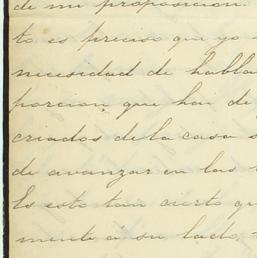 de mi proposicion.
to es preciso que yo
necesidad de habla
porcion, que han de
criados de la casa s
de avanzar en las
ls esto tan cierto qu
mente á su lado,